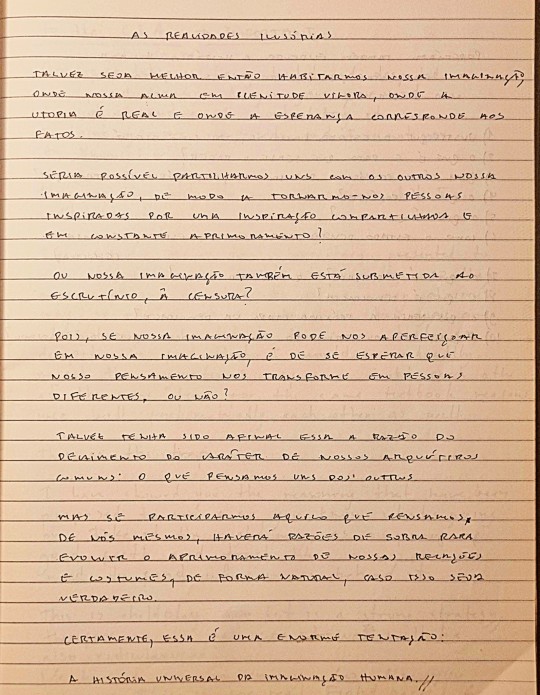 AS REALIDADES ILUSÓRIAS
TALVEZ SEJA MELHOR ENTÃO HABITARMOS NOSSA IMAGINAÇÃO,
ONDE NOSSA ALMA EM PLENITUDE VIGORA, ONDE A
UTOPIA É REAL E ONDE A ESPERANÇA CORRESPONDE AOS
FATOS.
SERIA POSSÍVEL PARTILHARMOS UNS COM OS OUTROS NOSSA
IMAGINAÇÃO, DE MODO A TORNARMO-NOS PESSOAS
INSPIRADAS POR UMA INSPIRAÇÃO COMPARTILHADA E
EM CONSTANTE APRIMORAMENTO?
OU NOSSA IMAGINAÇÃO TAMBÉM ESTÁ SUBMETIDA AO
ESCRUTÍNIO, À CENSURA?
POIS, SE NOSSA IMAGINAÇÃO PODE NOS APERFEIÇOAR
EM NOSSA IMAGINAÇÃO, É DE SE ESPERAR QUE
NOSSO PENSAMENTO NOS TRANSFORME EM PESSOAS
DIFERENTES, OU NÃO?
TALVEZ TENHA SIDO AFINAL ESSA A RAZÃO DO
DO CARÁTER DE NOSSOS ARQUÉTIPOS
COMUNS: O QUE PENSAMOS UNS DOS OUTROS
MAS SE PARTICIPARMOS AQUILO QUE PENSAMOS,
DE NÓS MESMOS, HAVERÁ RAZÕES DE SOBRA PARA
EVOLUIR O APRIMORAMENTO DE NOSSAS RELAÇÕES
E COSTUMES, DE FORMA NATURAL, CASO ISSO SEJA
VERDADEIRO.
CERTAMENTE, ESSA É UMA ENORME TENTAÇÃO:
A HISTÓRIA UNIVERSAL DA IMAGINAÇÃO HUMANA.//